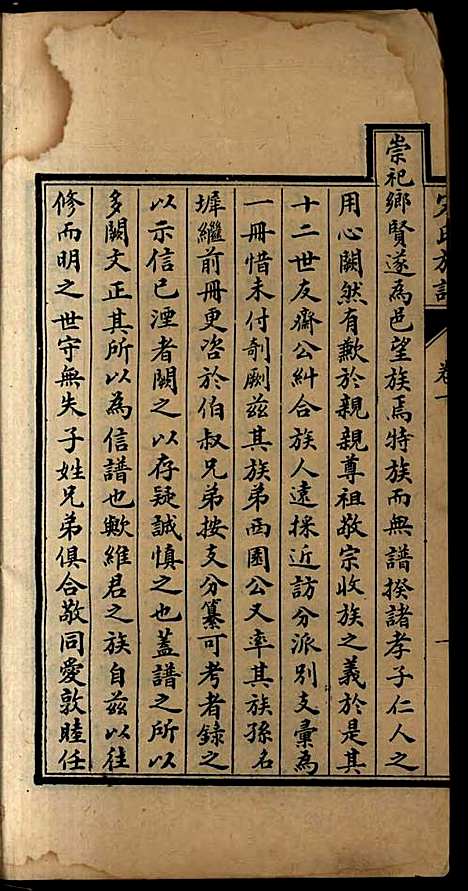 宋氏族譜
卷一
一
崇祀鄉賢遂為邑望族焉特族而無譜揆諸孝子仁人之
用心闕然有歉於親親尊祖敬宗收族之義於是其
十二世友齋公糾合族人遠採近訪分派別支彙為
一冊惜未付剞劂茲其族弟西園公又率其族孫名
墀繼前冊更咨於伯叔兄弟按支分纂可考者錄之
以示信已湮者闕之以存疑誠慎之也蓋譜之所以
多闕文正其所以為信譜也歟維君之族自茲以往
修而明之世守無失子姓兄弟俱合敬同愛敦睦任